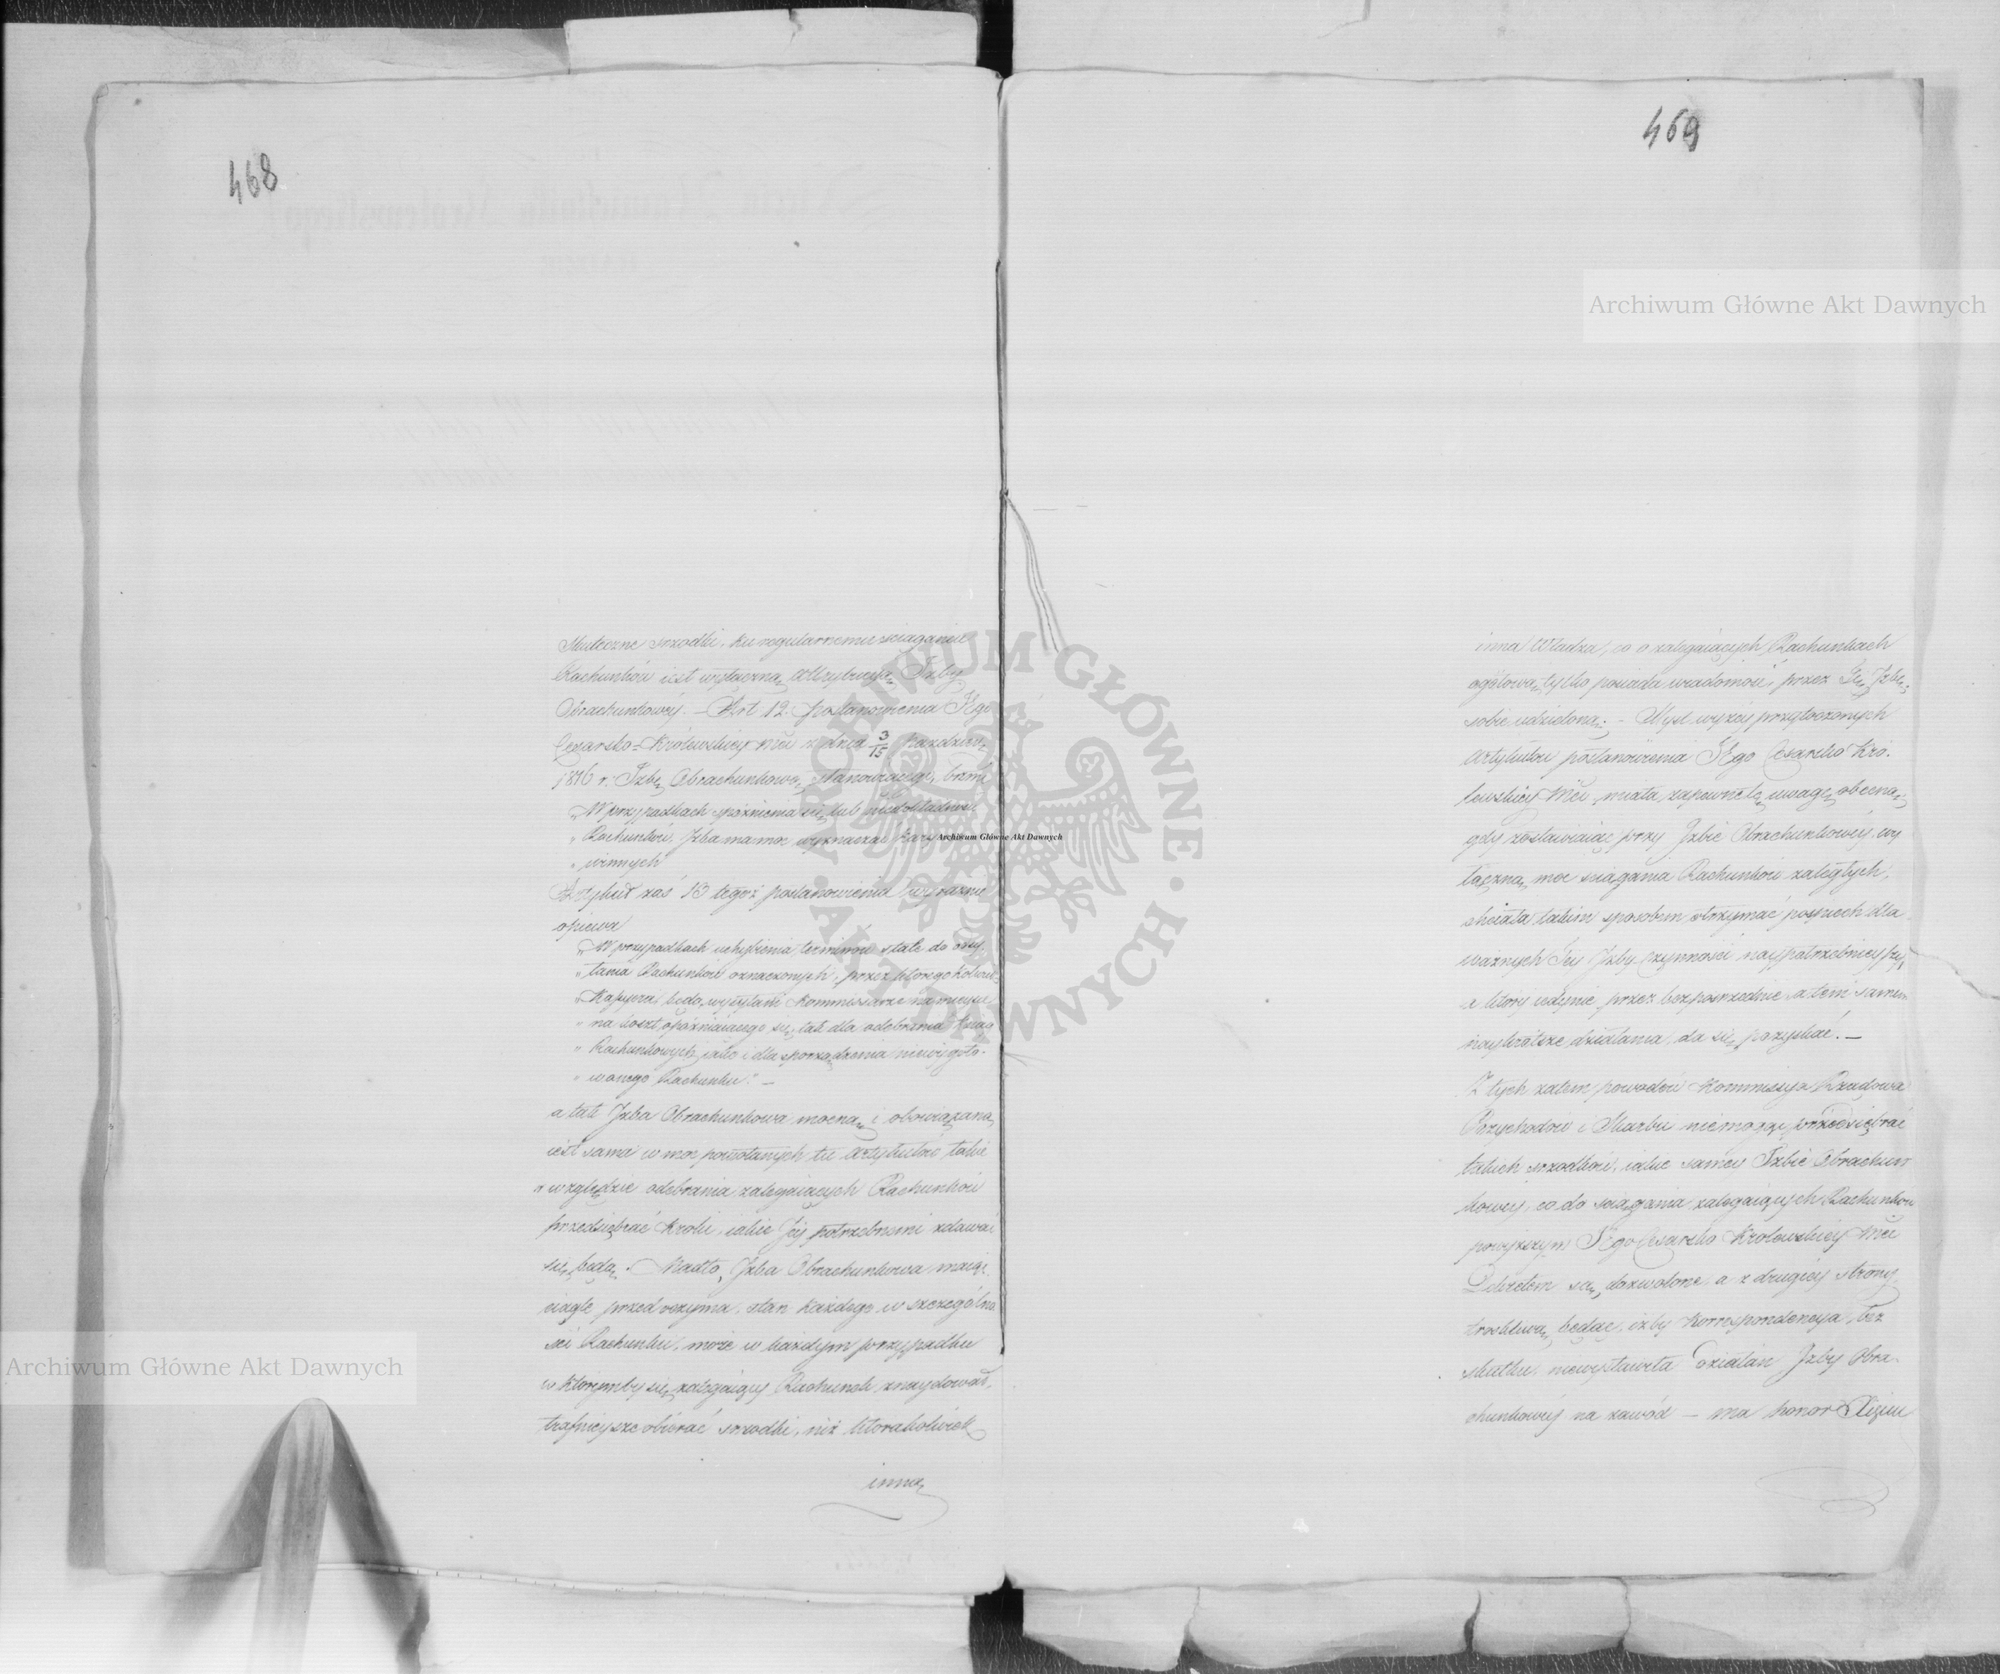 468
skuteczne srzodki, ku regularnemu ściąganiu
Rachunków iest wyłączną Attrybucyą Izby
Obrachunkowéy. — Art 12. postanowienia J<sup>ego</sup>
Cesarsko-Królewskiey Mći z dnia 3/15 Paździer:
1816 r. Izbę Obrachunkową stanowiącego, brzmi
„W przypadkach spóźnienia się lub niedokładnoś:
„Rachunków, Izba ma moc wyznaczać kary
„winnych
Artykuł zaś 13 tegoż postanowienia wyraźnie
opiewa
„W przypadkach uchybienia terminów stale do odsy-
„łania Rachunków oznaczonych, przez któregokolwiek
„Kassyera, będą wysyłani Kommissarze na mieysce
„na koszt opóźniaiącego się, tak dla odebrania Xiąg
„Rachunkowych, iako i dla sporządzenia niewygoto-
„wanego Rachunku." —
a tak Izba Obrachunkowa mocną i obowiązaną
iest sama w moc powołanych tu artykułów takie
w względzie odebrania zalegaiących Rachunków
przedsiębrać kroki, iakie Jéy potrzebnemi zdawać
się będą. Nadto, Izba Obrachunkowa maiąc
ciągle przed oczyma, stan każdego w szczególno
ści Rachunku, może w każdym przypadku
w którymby się zalegaiący Rachunek znaydował,
trafnieysze obierać srzodki, niż którakolwiek
inna
469
inna Władza, co o zalegaiących Rachunkach
ogółową tylko posiada wiadomość, przez Tęż Izbę
sobie udzieloną. — Myśl wyżéy przytoczonych
Artykułów postanowienia J<sup>ego</sup> Cesarsko Kró-
lewskiey Mći, miała zapewne tę uwagę obecną,
gdy zostawiaiąc przy Izbie Obrachunkowéy, wy
łączną moc ściągania Rachunków zaległych,
chciała takim sposobem otrzymać pośpiech dla
ważnych Téy Izby czynności naypotrzebnieyszy,
a który iedynie przez bezpośrednie, a tém samem
naykrótsze działania, da się pozyskać. —
Z tych zatem powodów Kommissya Rządowa
Przychodów i Skarbu nie mogąc przedsiębrać
takich srzodków, iakie samey Izbie Obrachun
kowey, co do ściągania zalegaiących Rachunków
powyższym J<sup>ego</sup> Cesarsko Królewskiey Mći
Dekretem są dozwolone, a z drugiey strony
troskliwą będąc, iżby korrespondencya, bez
skutku, niewystawiła działań Izby Obra-
chunkowéy na zawód — ma honor Xięciu
Archiwum Główne Akt Dawnych
Archiwum Główne Akt Dawnych
Archiwum Główne Akt Dawnych
ARCHIWUM GŁÓWNE AKT DAWNYCH